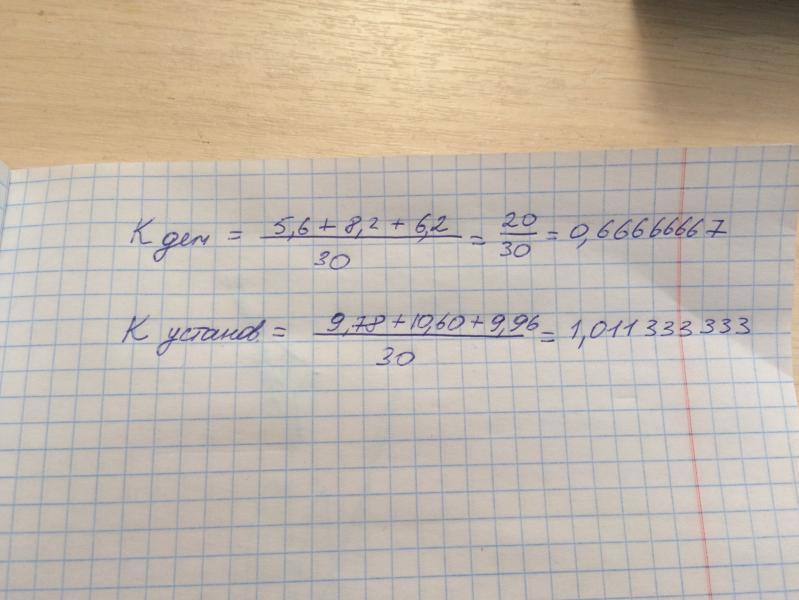 К дем = 5,6 + 8,2 + 6,2 / 30 = 20 / 30 = 0,66666667
К установ = 9,78 + 10,60 + 9,96 / 30 = 1,011333333